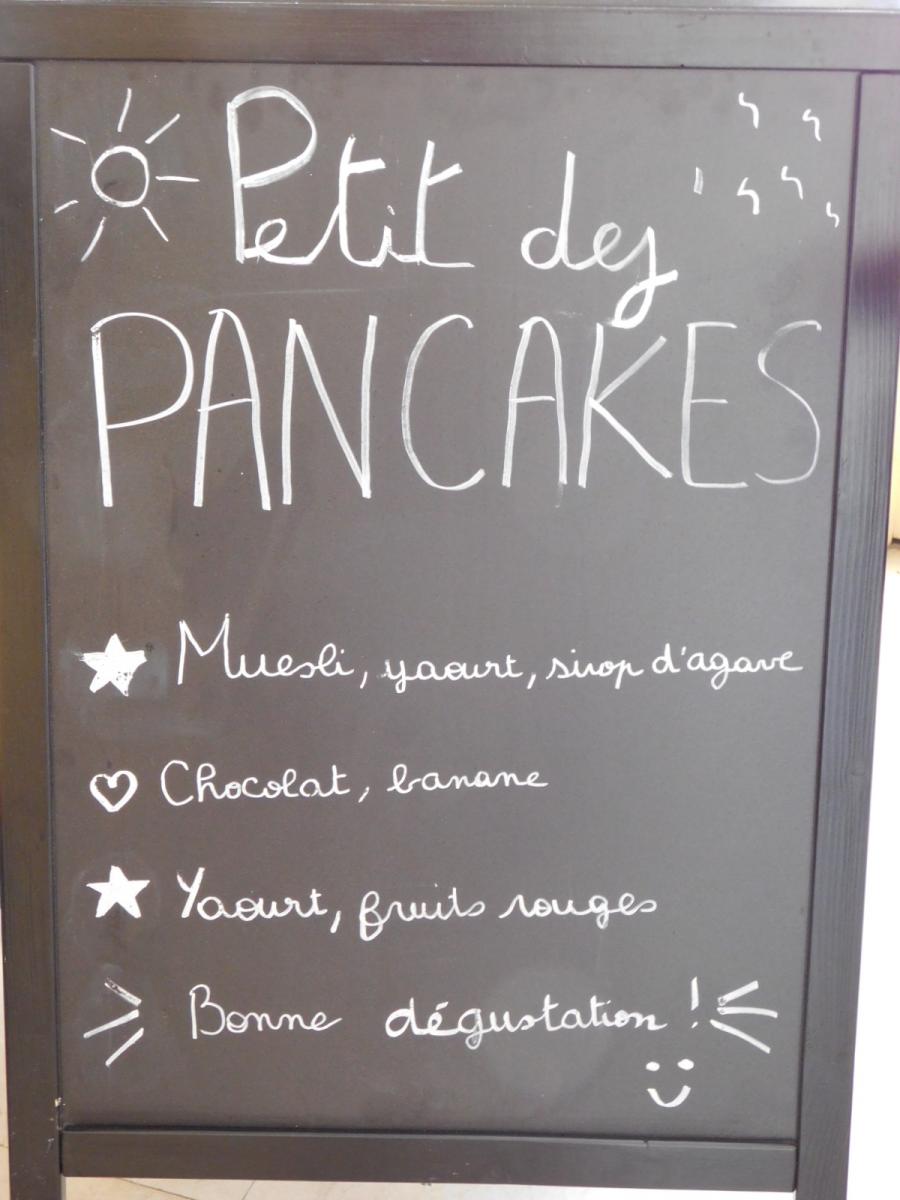 Petit dej
PANCAKES
Muesli, yaourt, sirop d'agave
Chocolat, banane
Yaourt, fruits rouges
Bonne dégustation !